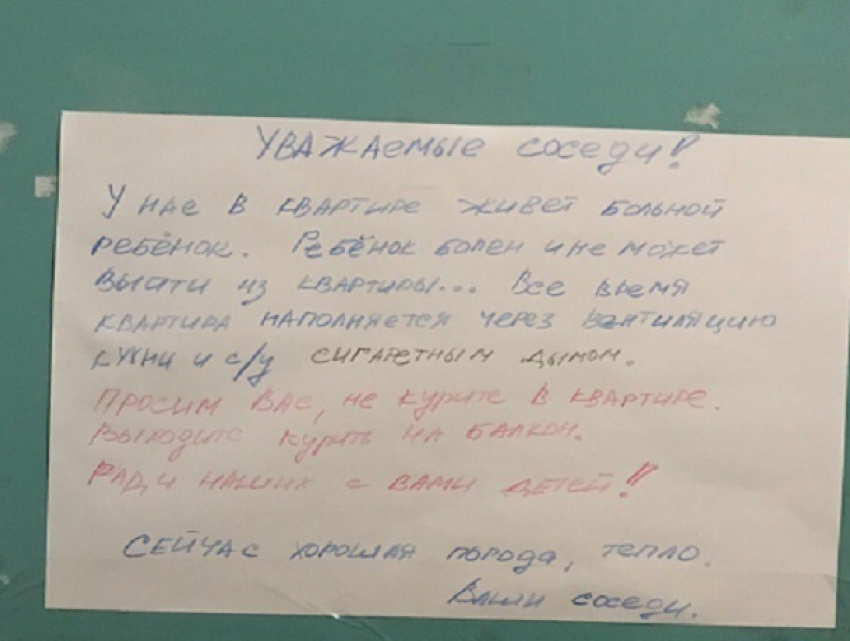 Уважаемые соседи!
У нас в квартире живет больной
ребёнок. Ребёнок болен и не может
выйти из квартиры... Все время
квартира наполняется через вентиляцию
кухни и с/у сигаретным дымом.
Просим Вас, не курите в квартире.
Выходите курить на балкон.
Ради наших с вами детей!!
Сейчас хорошая погода, тепло.
Ваши соседи.